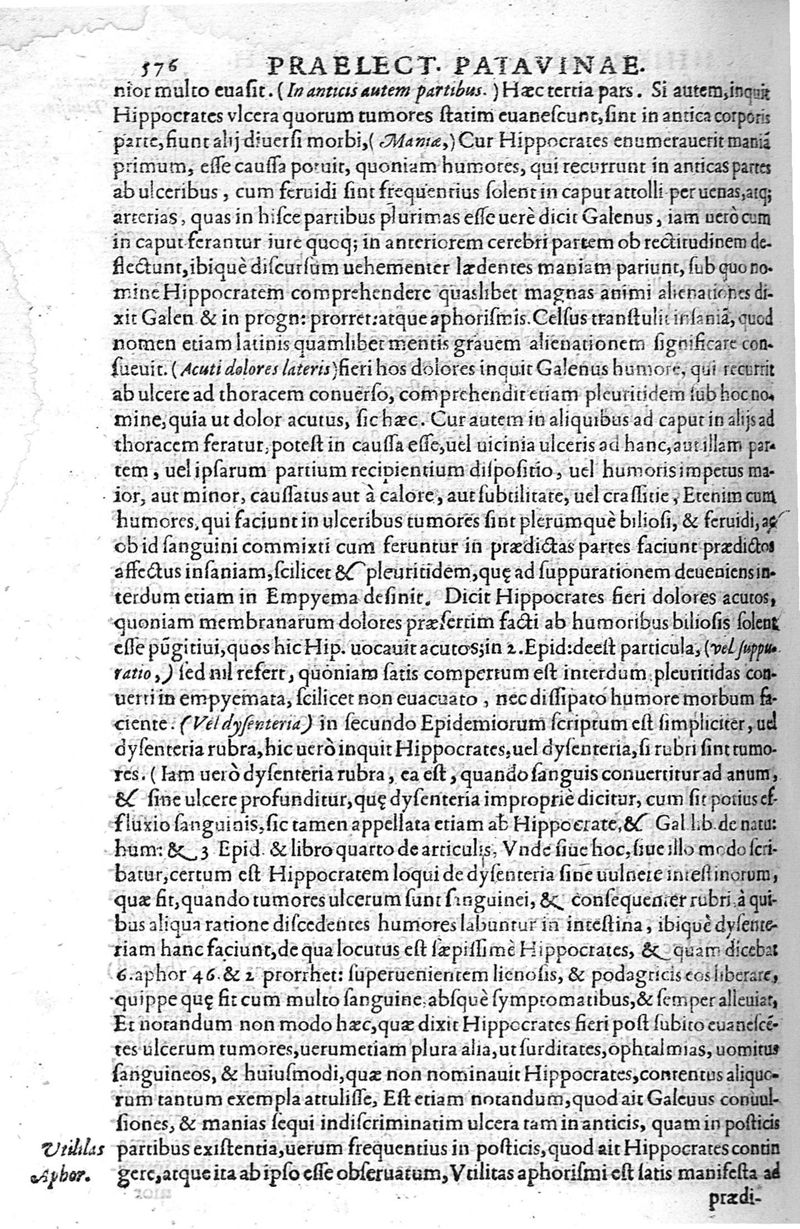 576 PRAELECT. PATAVINAE.
nior multo euasit. (In anticis autem partibus.) Hæc tertia pars. Si autem, inquit
Hippocrates vlcera quorum tumores ſtatim euaneſcunt, ſint in antica corporis
parte, fiunt alij diuerſi morbi, (Maniæ,) Cur Hippocrates enumerauerit maniã
primum, eſſe cauſſa potuit, quoniam humores, qui recurrunt in anticas partes
ab ulceribus, cum feruidi ſint frequentius ſolent in caput attolli per uenas, atq;
arterias, quas in hiſce partibus plurimas eſſe uerè dicit Galenus, iam uerò cum
in caput ferantur iure quoq; in anteriorem cerebri partem ob rectitudinem de-
flectunt, ibiquè diſcurſum uehementer lædentes maniam pariunt, ſub quo no-
mine Hippocratem comprehendere quaslibet magnas animi alienationes di-
xit Galen & in progn: prorret: atque aphoriſmis. Celſus tranſtulit inſaniã, quod
nomen etiam latinis quamlibet mentis gráuem alienationem ſignificare con-
ſueuit. (Acuti dolores lateris) fieri hos dolores inquit Galenus humore, qui recurrit
ab ulcere ad thoracem conuerſo, comprehendit etiam pleuritidem ſub hoc no-
mine, quia ut dolor acutus, ſic hæc. Cur autem in aliquibus ad caput in alijs ad
thoracem feratur, poteſt in cauſſa eſſe, uel uicinia ulceris ad hanc, aut illam par-
tem, uel ipſarum partium recipientium diſpoſitio, uel humoris impetus ma-
ior, aut minor, cauſſatus aut à calore, aut ſubtilitate, uel craſſitie, Etenim cum
humores, qui faciunt in ulceribus tumores ſint plerumquè bilioſi, & feruidi, ac
ob id ſanguini commixti cum feruntur in prædictas partes faciunt prædictos
affectus inſaniam, ſcilicet & pleuritidem, quę ad ſuppurationem deueniens in-
terdum etiam in Empyema deſinit. Dicit Hippocrates fieri dolores acutos,
quoniam membranarum dolores præſertim facti ab humoribus bilioſis ſolent
eſſe pũgitiui, quos hic Hip. uocauit acutos; in 2. Epid: deeſt particula, (vel ſuppu-
ratio,) ſed nil refert, quoniam ſatis compertum eſt interdum pleuritidas con-
uerti in empyemata, ſcilicet non euacuato, nec diſſipato humore morbum fa-
ciente. (Vel dyſenteria) in ſecundo Epidemiorum ſcriptum eſt ſimpliciter, uel
dyſenteria rubra, hic uerò inquit Hippocrates, uel dyſenteria, ſi rubri ſint tumo-
res. (Iam uerò dyſenteria rubra, ea eſt, quando ſanguis conuertitur ad anum,
& ſine ulcere profunditur, quę dyſenteria impropriè dicitur, cum ſit potius ef-
fluxio ſanguinis, ſic tamen appellata etiam ab Hippocrate, & Gal lib. de natu:
hum: & 3 Epid. & libro quarto de articulis, Vnde ſiue hoc, ſiue illo modo ſcri-
batur, certum eſt Hippocratem loqui de dyſenteria ſine uulnere inteſtinorum,
quæ fit, quando tumores ulcerum ſunt ſanguinei, & conſequenter rubri à qui-
bus aliqua ratione diſcedentes humores labuntur in inteſtina, ibiquè dyſente-
riam hanc faciunt, de qua locutus eſt ſæpiſſimè Hippocrates, & quam dicebat
6. aphor 46. & 2 prorrhet: ſuperuenientem lienoſis, & podagricis eos liberare,
quippe quę fit cum multo ſanguine, absquè ſymptomatibus, & ſemper alleuiat,
Et notandum non modo hæc, quæ dixit Hippocrates fieri poſt ſubito euaneſcē-
tes ulcerum tumores, uerumetiam plura alia, ut ſurditates, ophtalmias, uomitus
ſanguineos, & huiuſmodi, quæ non nominauit Hippocrates, contentus aliquo-
rum tantum exempla attuliſſe, Eſt etiam notandum, quod ait Galeuus conuul-
ſiones, & manias ſequi indiſcriminatim ulcera tam in anticis, quam in poſticis
Utilitas partibus exiſtentia, uerum frequentius in poſticis, quod ait Hippocrates contin
Aphor. gere, atque ita ab ipſo eſſe obſeruatum, Vtilitas aphoriſmi eſt ſatis manifeſta ad
prædi-